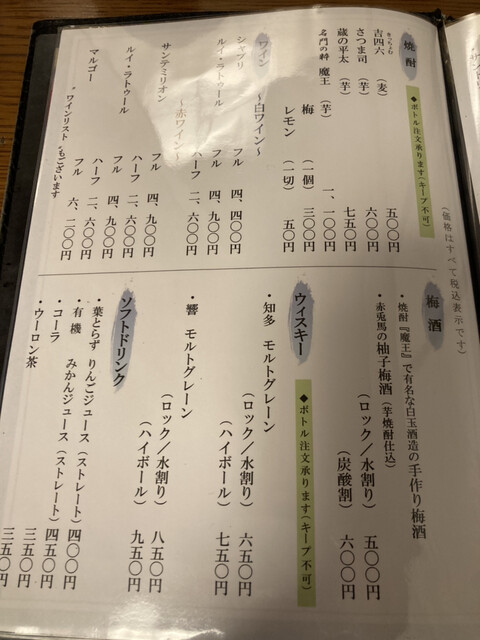 (価格はすべて税込表示です)
焼酎
◆ボトル注文承ります(キープ不可)
きっちょむ
吉四六 (麦) 五〇〇円
さつま司 (芋) 六〇〇円
蔵の平太 (芋) 七五〇円
名門の粋 魔王 (芋) 一、一〇〇円
梅 (一個) 三〇〇円
レモン (一切) 五〇円
ワイン
~白ワイン~
シャブリ フル 四、四〇〇円
ルイ・ラトゥール フル 四、九〇〇円
ハーフ 二、六〇〇円
~赤ワイン~
サンテミリオン フル 四、九〇〇円
ルイ・ラトゥール フル 四、九〇〇円
ハーフ 二、六〇〇円
マルゴー フル 六、二〇〇円
ワインリストもございます
梅酒
・焼酎『魔王』で有名な白玉酒造の手作り梅酒
・赤兎馬の柚子梅酒(芋焼酎仕込)
(ロック/水割り) 五〇〇円
(炭酸割) 六〇〇円
ウィスキー
◆ボトル注文承ります(キープ不可)
・知多 モルトグレーン
(ロック/水割り) 六五〇円
(ハイボール) 七五〇円
・響 モルトグレーン
(ロック/水割り) 八五〇円
(ハイボール) 九五〇円
ソフトドリンク
・葉とらず りんごジュース(ストレート) 四〇〇円
・有機 みかんジュース(ストレート) 四五〇円
・コーラ 三五〇円
・ウーロン茶 三五〇円